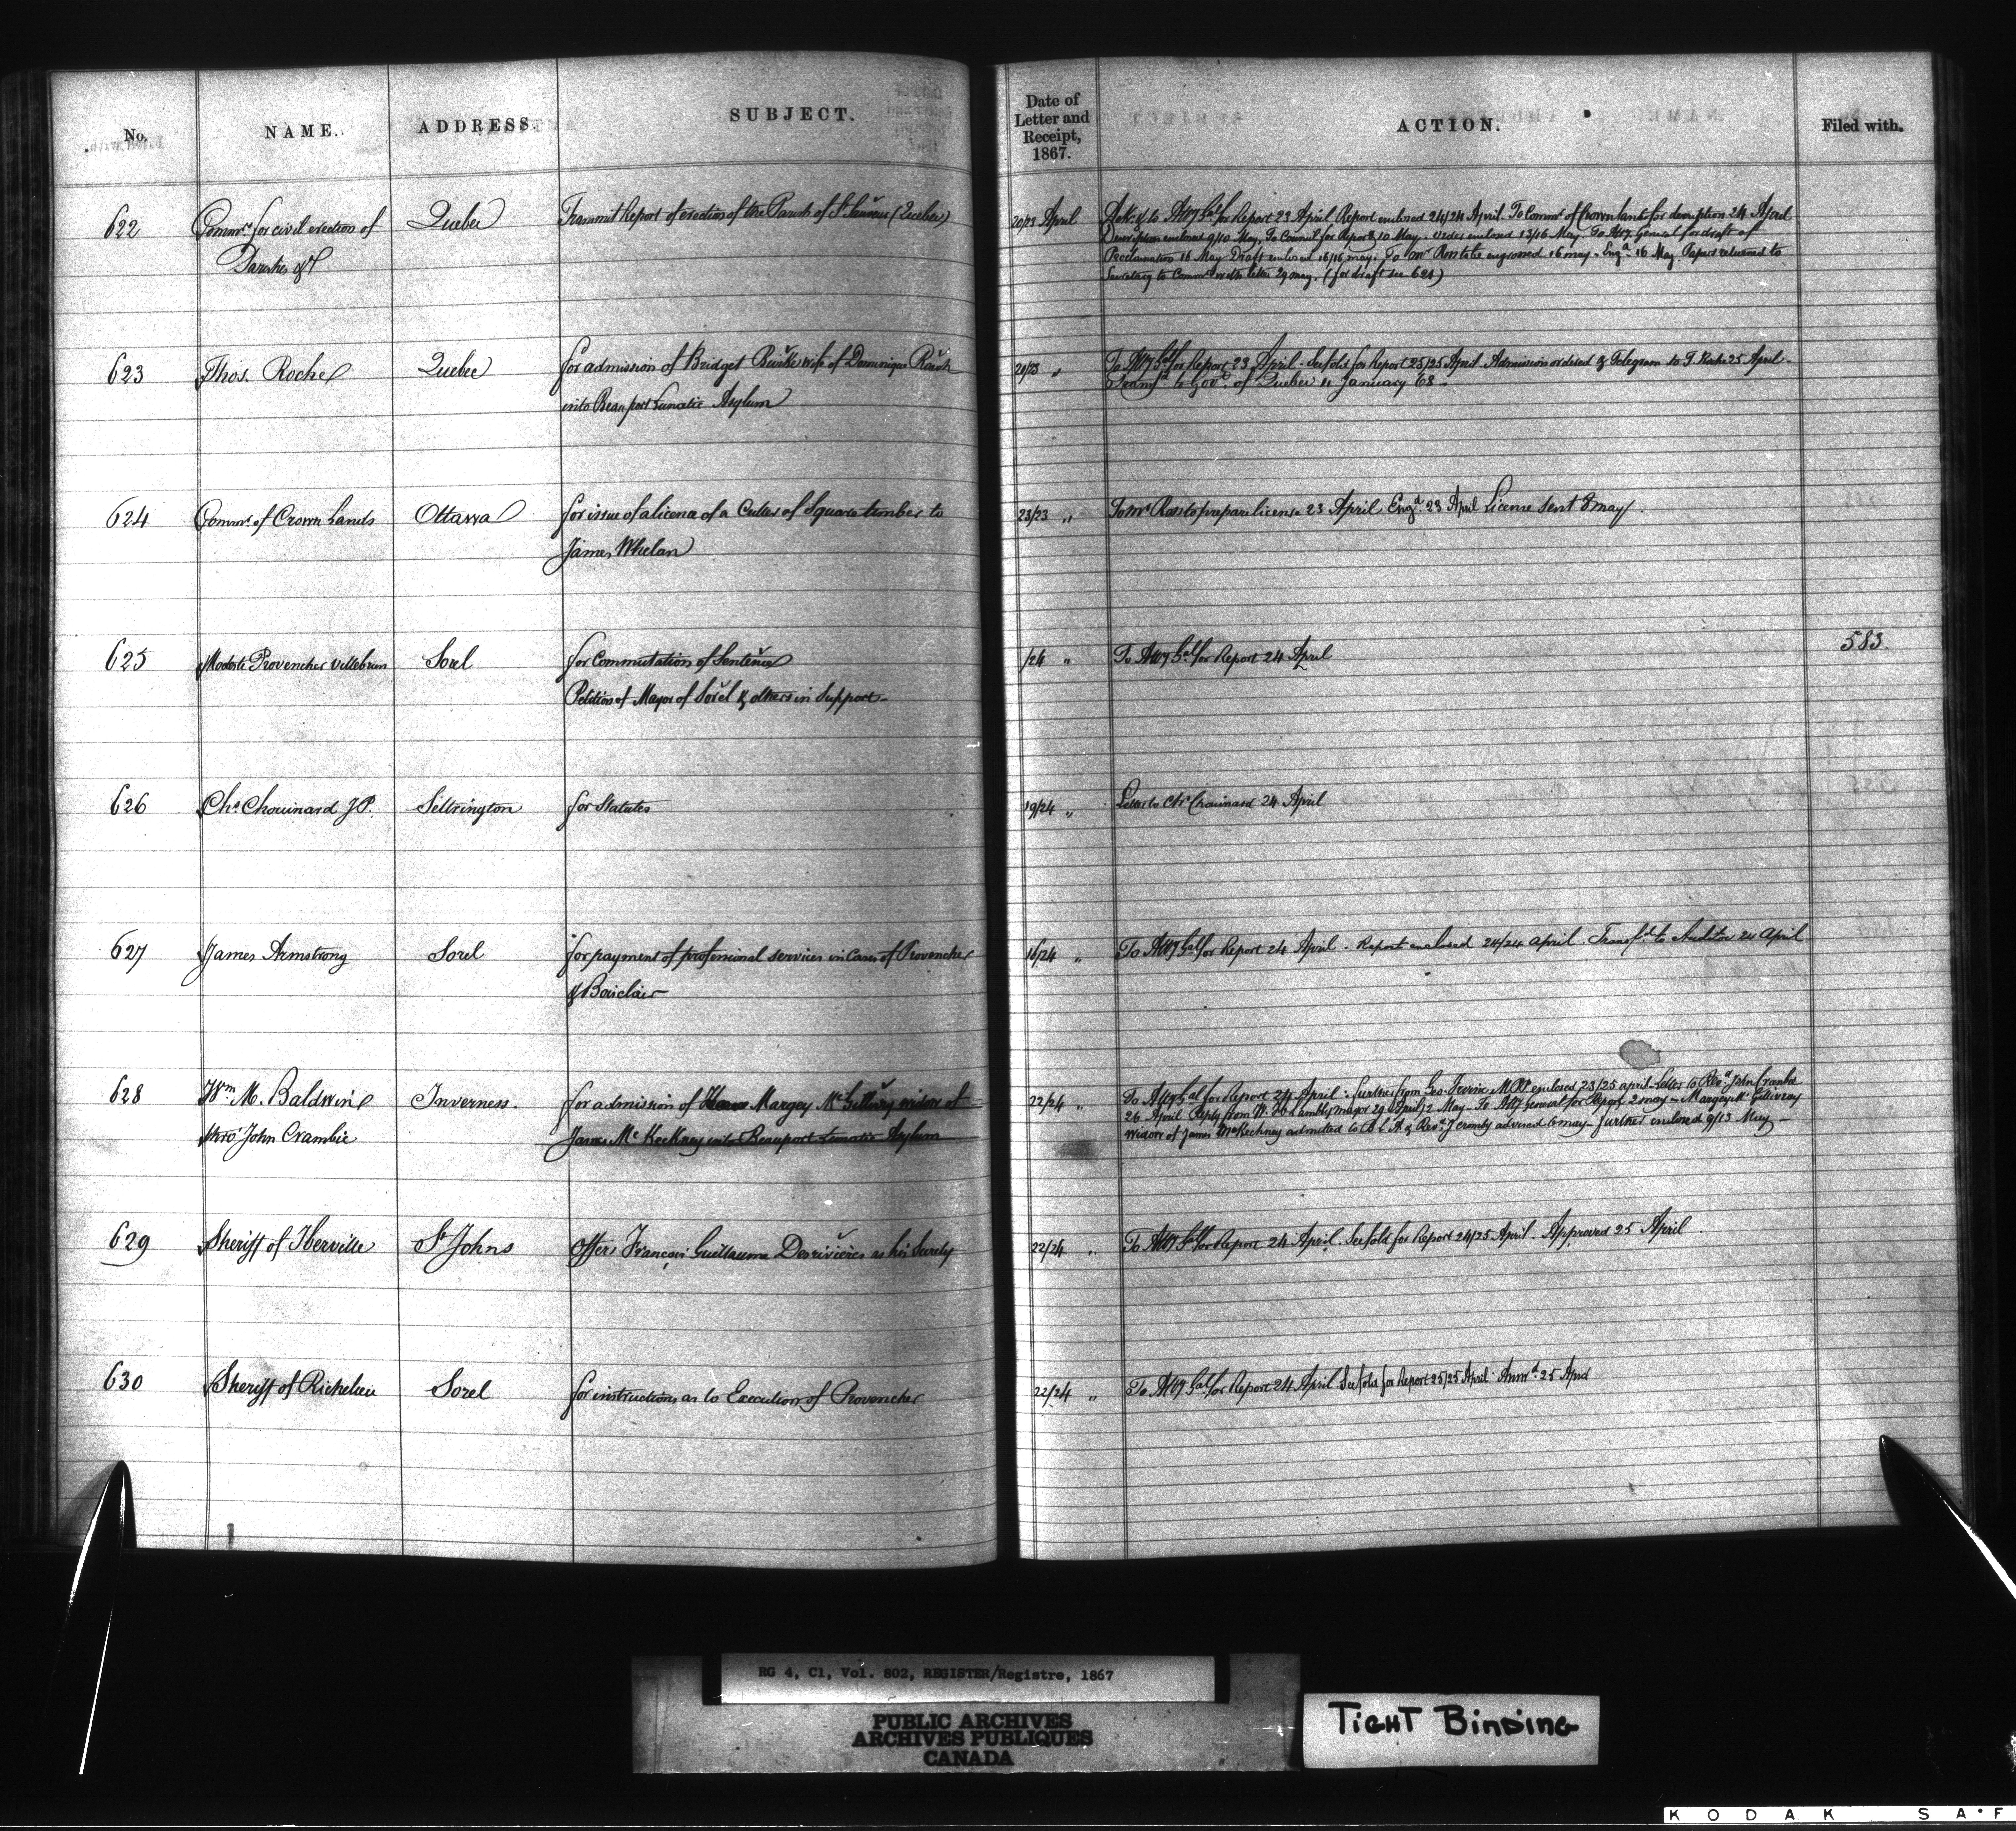 No.
NAME.
ADDRESS.
SUBJECT.
Date of
Letter and
Receipt,
1867.
ACTION.
Filed with.
622
Commrs. for civil erection of
Parishes &c
Quebec
Transmit Report of erection of the Parish of St. Sauveur (Quebec)
20/23 April
Ack. & to Atty Gal for Report 23 April Report enclosed 24/24 April. To Commr of Crown Lands for description 24 April
Description enclosed 9/10 May. To Council for Report 10 May. Order enclosed 13/16 May To Atty General for draft of
Proclamation 16 May Draft enclosed 16/16 may. To Mr Ross to be engrossed 16 may - Engd. 16 May Papers returned to
Secretary to Commrs with letter 29 may. (for draft see 621)
623
Thos. Roche
Quebec
for admission of Bridget Burke wife of Dominique Roach
into Beauport Lunatic Asylum
20/23 "
To Atty Gal for Report 23 April - See fold for Report 25/25 April - Admission ordered & Telegram to T. Roche 25 April -
Transfd to Govt. of Quebec 11 January 68 -
624
Commr. of Crown Lands
Ottawa
for issue of a licence of a Culler of Square timber to
James Whelan
23/23 "
To Mr Ross to prepare license 23 April Engd. 23 April License sent 8 may.
625
Modeste Provencher Villebrun
Sorel
for Commutation of Sentence
Petition of Mayor of Sorel & others in Support -
/24 "
To Atty Gal for Report 24 April
583
626
Chs. Chouinard J.P.
Settrington
for Statutes
19/24 "
Letter to Chs Chouinard 24 April
627
James Armstrong
Sorel
for payment of professional services in Cases of Provencher
& Boisclair
16/24 "
To Atty Gal for Report 24 April - Report enclosed 24/24 April Transfd. to Auditor 24 April
628
Wm. M. Baldwin
Revd John Crambie
Inverness.
for admission of Margey McGillivray widow of
James McKeckney into Beauport Lunatic Asylum
22/24 "
To Atty Gal for Report 24 April - further from Geo. Irvine MPP enclosed 23/25 april - Letter to Revd. John Crambie
26 April Reply from W. Lambly major 29 April/2 May - To Atty General for Report 2 may - Margey McGillivray
Widow of James McKechney admitted to B L A & Revd. J Cromby advised 6 may - further enclosed 9/13 May -
629
Sheriff of Iberville
St. Johns
Offers François Guillaume Desrivières as his Surety
22/24 "
To Atty Gal for Report 24 April. See fold for Report 24/25 April - Approved 25 April
630
Sheriff of Richelieu
Sorel
for instructions as to Execution of Provencher
22/24 "
To Atty Gal for Report 24 April See fold for Report 25/25 April - Answd. 25 April
RG 4, C1, Vol. 802, REGISTER/Registre, 1867
PUBLIC ARCHIVES
ARCHIVES PUBLIQUES
CANADA
TIGHT BINDING
KODAK SAF